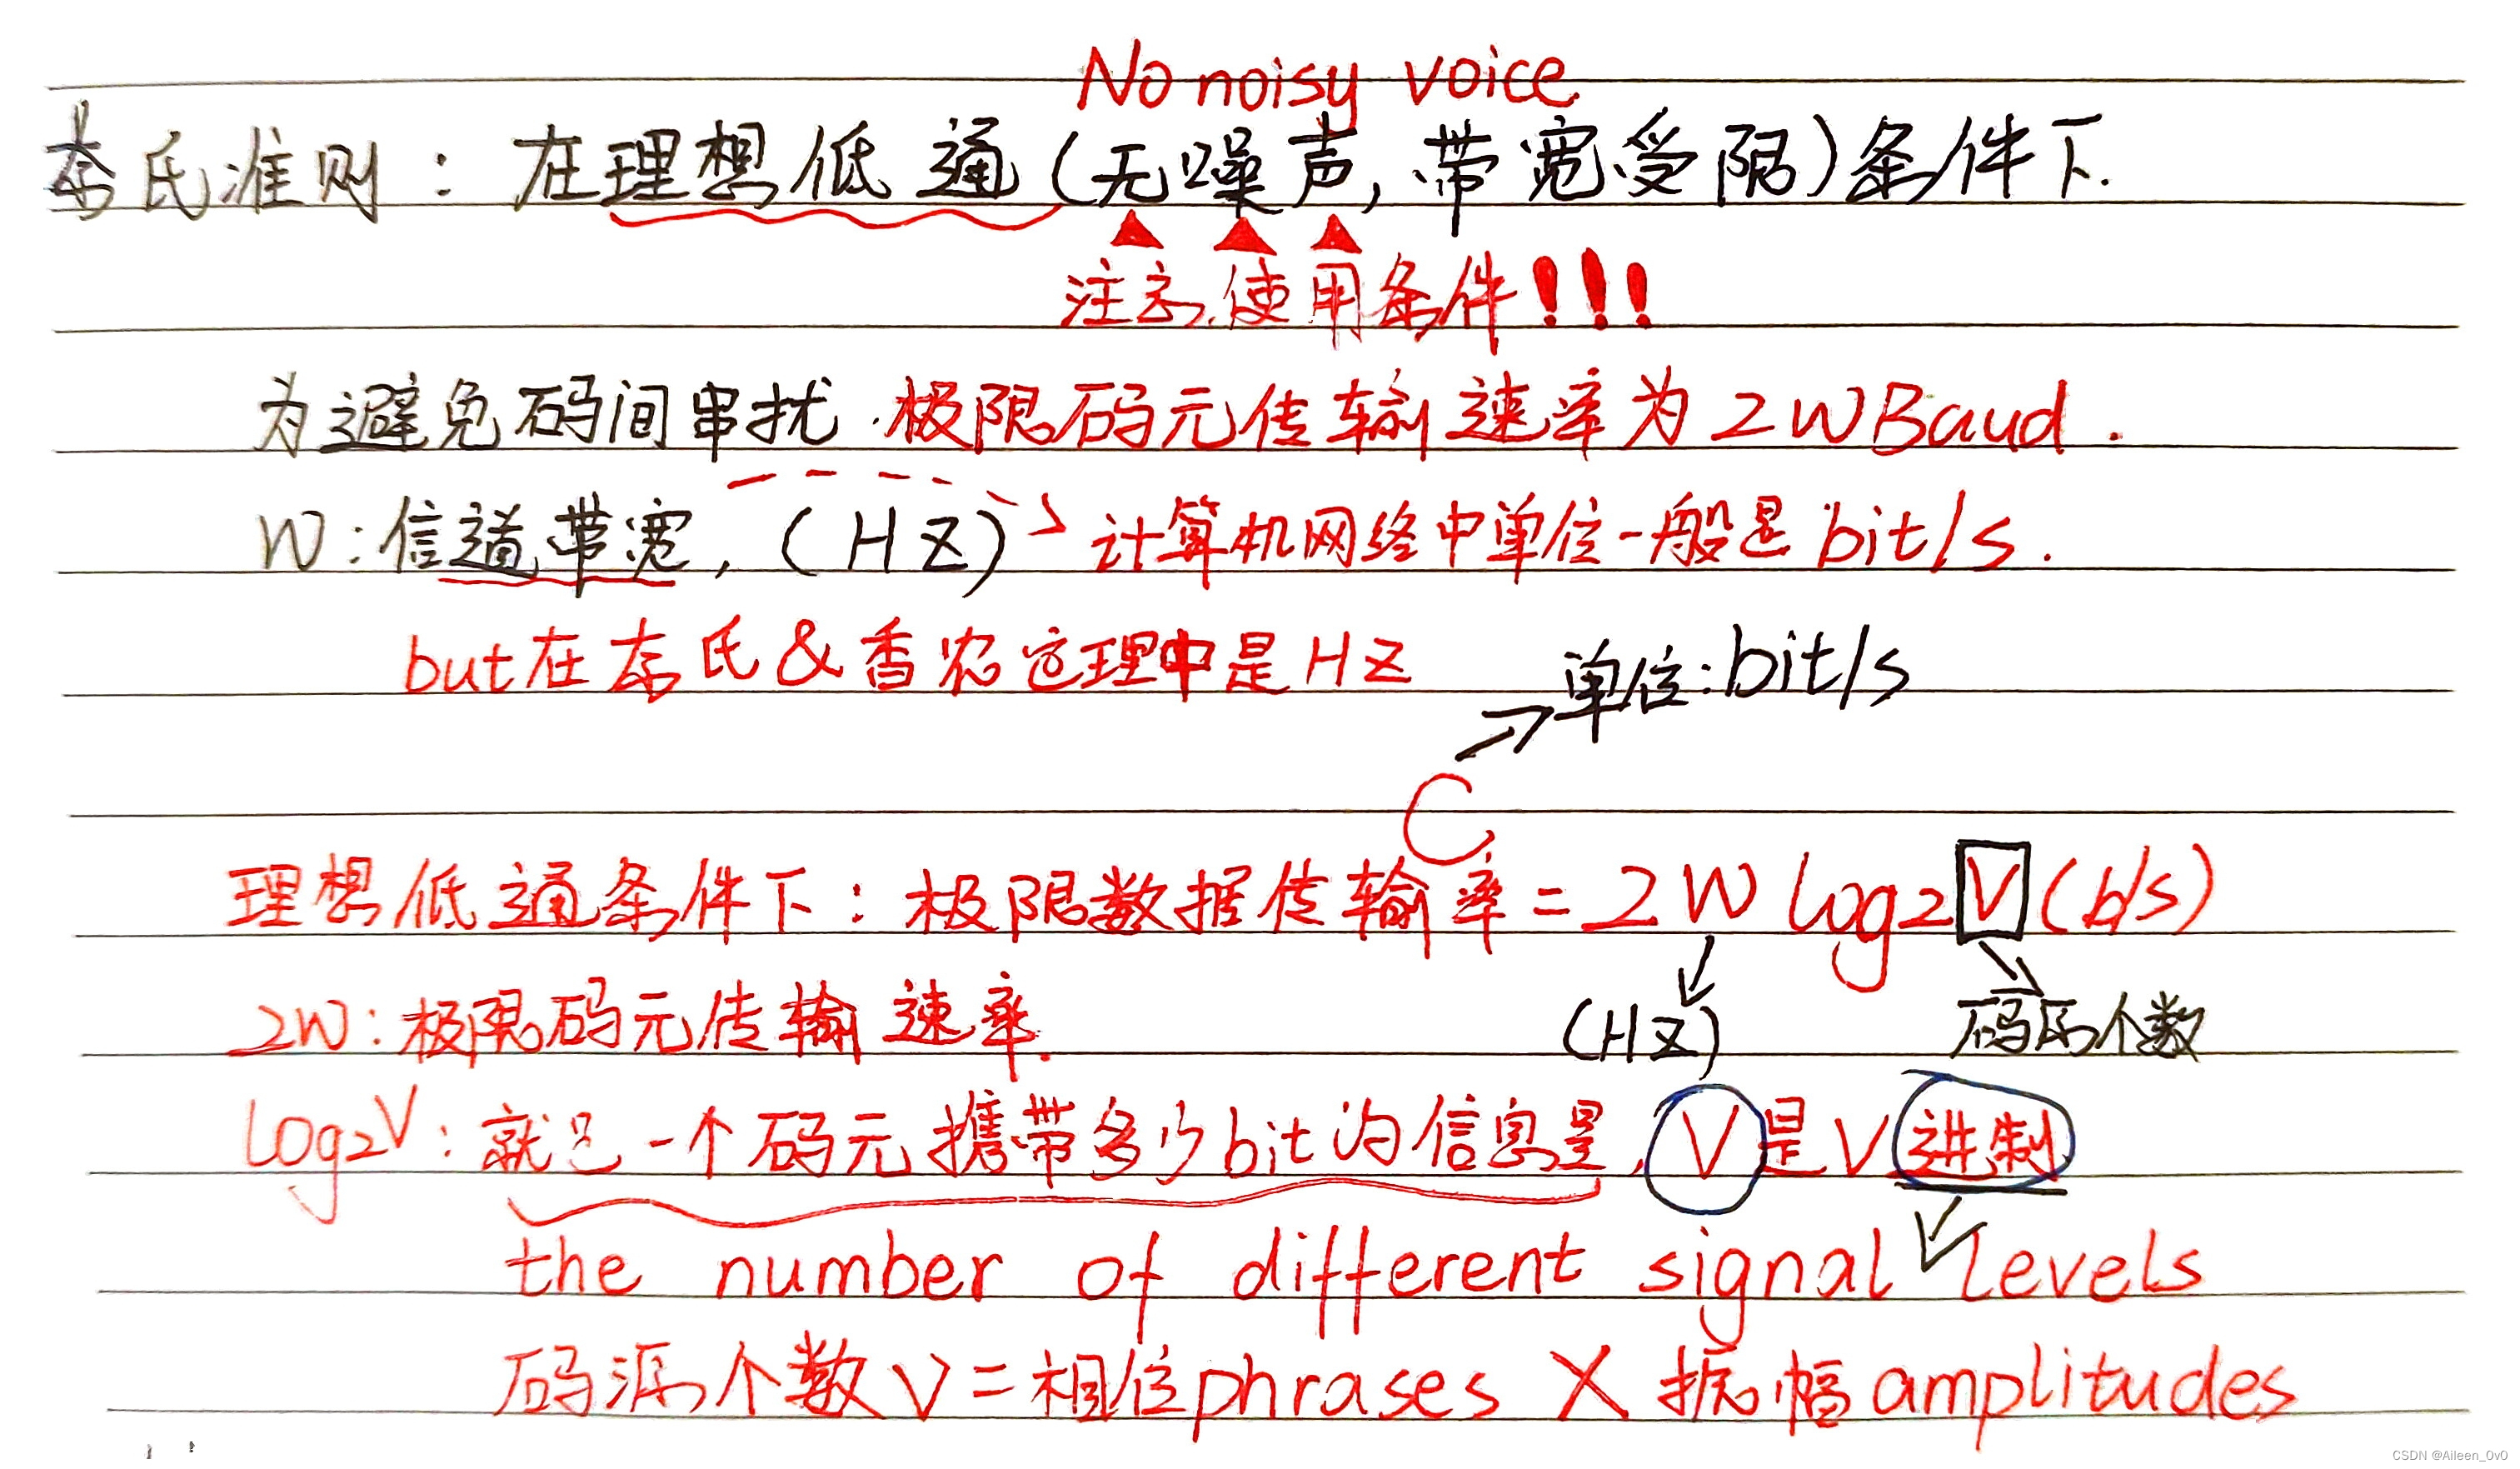 No noisy voice
奈氏准则：在理想低通(无噪声,带宽受限)条件下.
注意,使用条件!!!
为避免码间串扰.极限码元传输速率为2WBaud.
W:信道带宽,(HZ) 计算机网络中单位一般是bit/s.
but在奈氏&香农定理中是HZ
单位:bit/s
C
理想低通条件下:极限数据传输率=2Wlog2V(b/s)
2W:极限码元传输速率.
(HZ)
码后个数
log2V:就是一个码元携带多少bit的信息量,V是V进制
the number of different signal levels
码源个数V=相位phrases X 振幅amplitudes
CSDN @Aileen_0v0